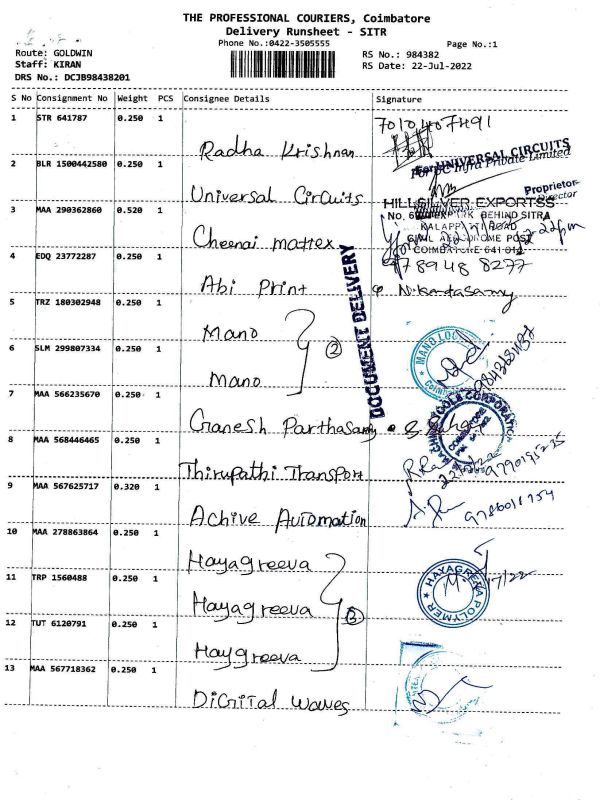 THE PROFESSIONAL COURIERS, Coimbatore
Delivery Runsheet - SITR
Phone No.:0422-3505555
Page No.:1
Route: GOLDWIN
RS No.: 984382
Staff: KIRAN
RS Date: 22-Jul-2022
DRS No.: DCJB98438201
S No Consignment No Weight PCS Consignee Details Signature
1 STR 641787 0.250 1 Radha Krishnan
7010407491
2 BLR 1500442580 0.250 1 Universal Circuits
For UNIVERSAL CIRCUITS
Infra Private Limited
Proprietor
Director
3 MAA 290362860 0.520 1 Cheenai mattex
HILLSILVER EXPORTSS
BEHIND SITRA
KALAPPATTI ROAD
CIVIL AERODROME POST
COIMBATORE 641 014
4 EDQ 23772287 0.250 1 Abi Print
978948 8277
DOCUMENT DELIVERY
5 TRZ 180302948 0.250 1 Mano
6 SLM 299807334 0.250 1 Mano
2
7 MAA 566235670 0.250 1 Ganesh Parthasamy
8 MAA 568446465 0.250 1 Thirupathi Transport
9790195235
9 MAA 567625717 0.320 1 Achive Automation
10 MAA 278863864 0.250 1 Hayagreeva
11 TRP 1560488 0.250 1 Hayagreeva
HAYAGREEVA POLYMER
12 TUT 6120791 0.250 1 Haygreeva
3
13 MAA 567718362 0.250 1 Digital Waves